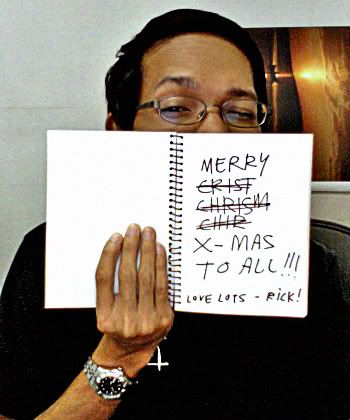 MERRY
CRIST
CHRISM
CHIR
X-MAS
TO ALL!!!
LOVE LOTS - RICK!